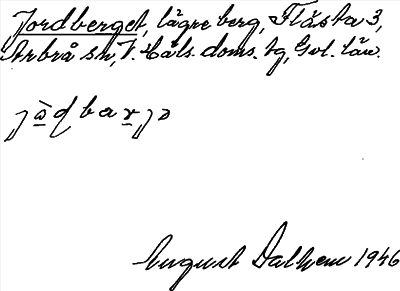 Jordberget, lägre berg, Flästa 3,
Arbrå sn, V. Häls. doms. tg, Gvl. län.
August Dalhem 1946